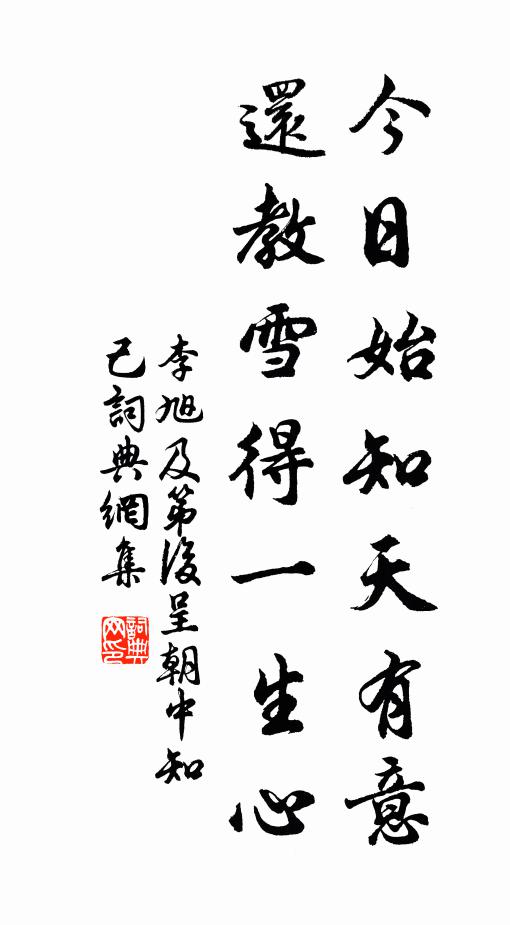 今日始知天有意
還教雪得一生心
李旭及第後呈朝中知
己詞典網集
詞典网印